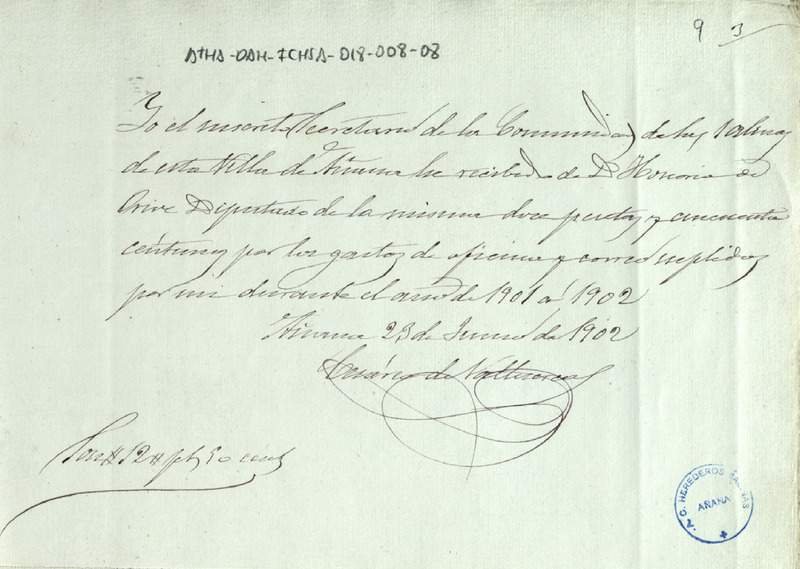 9 3
ATHA-DAH-FCHSA-018-008-08
Yo el suscrito Secretario de la Comunidad de las Salinas
de esta Villa de Añana he recibido de D. Honorio de
Orive Diputado de la misma doce pesetas y cincuenta
céntimos por los gastos de oficina y correo suplidos
por mi durante el año de 1901 a 1902
Añana 23 de Junio de 1902
Cesáreo de
Son # 12 # pts 50 cent
A. C. HEREDEROS SALINAS
AÑANA